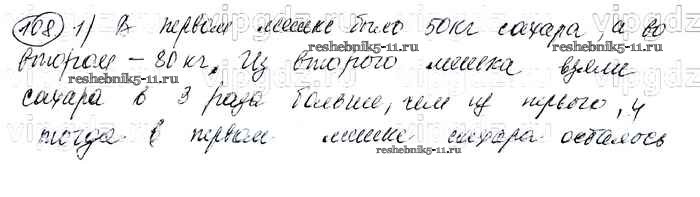 108 1) В первом мешке было 50 кг сахара, а во
втором – 80 кг. Из второго мешка взяли
сахара в 3 раза больше, чем из первого, и
тогда в первом мешке сахара осталось
reshebnik5-11.ru
reshebnik5-11.ru
reshebnik5-11.ru
reshebnik5-11.ru